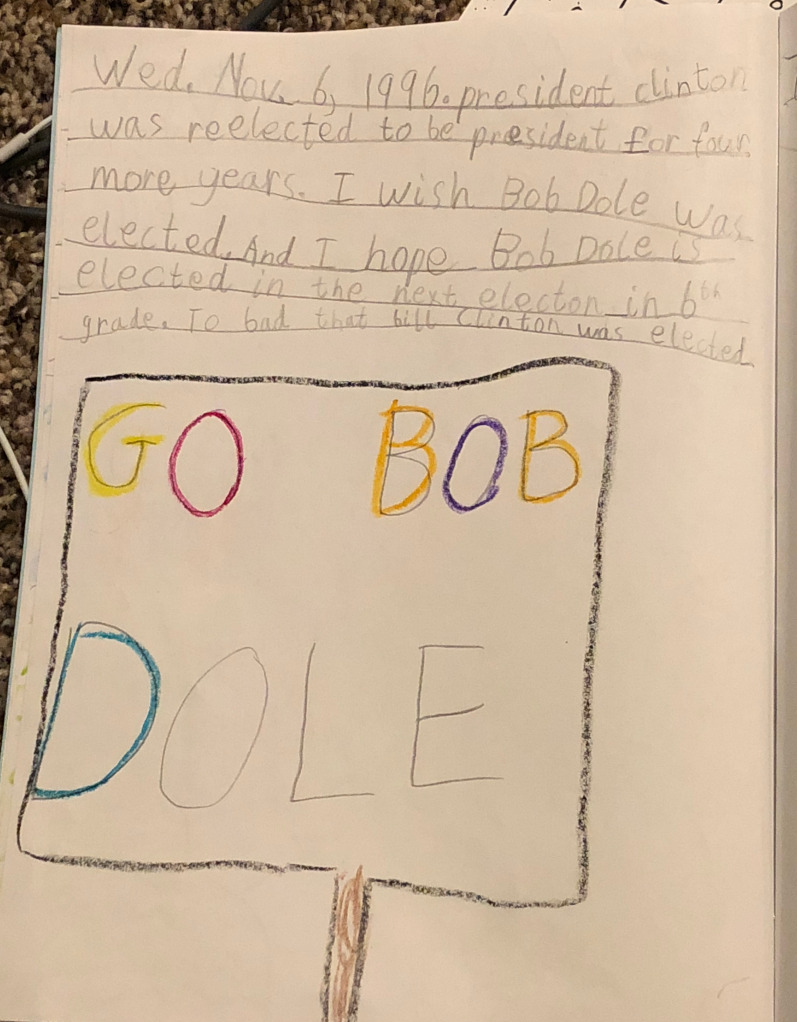 Wed. Nov. 6, 1996. president clinton
was reelected to be president for four
more years. I wish Bob Dole was
elected. And I hope Bob Dole is
elected in the next electon in 6th
grade. To bad that bill Clinton was elected
GO BOB
DOLE